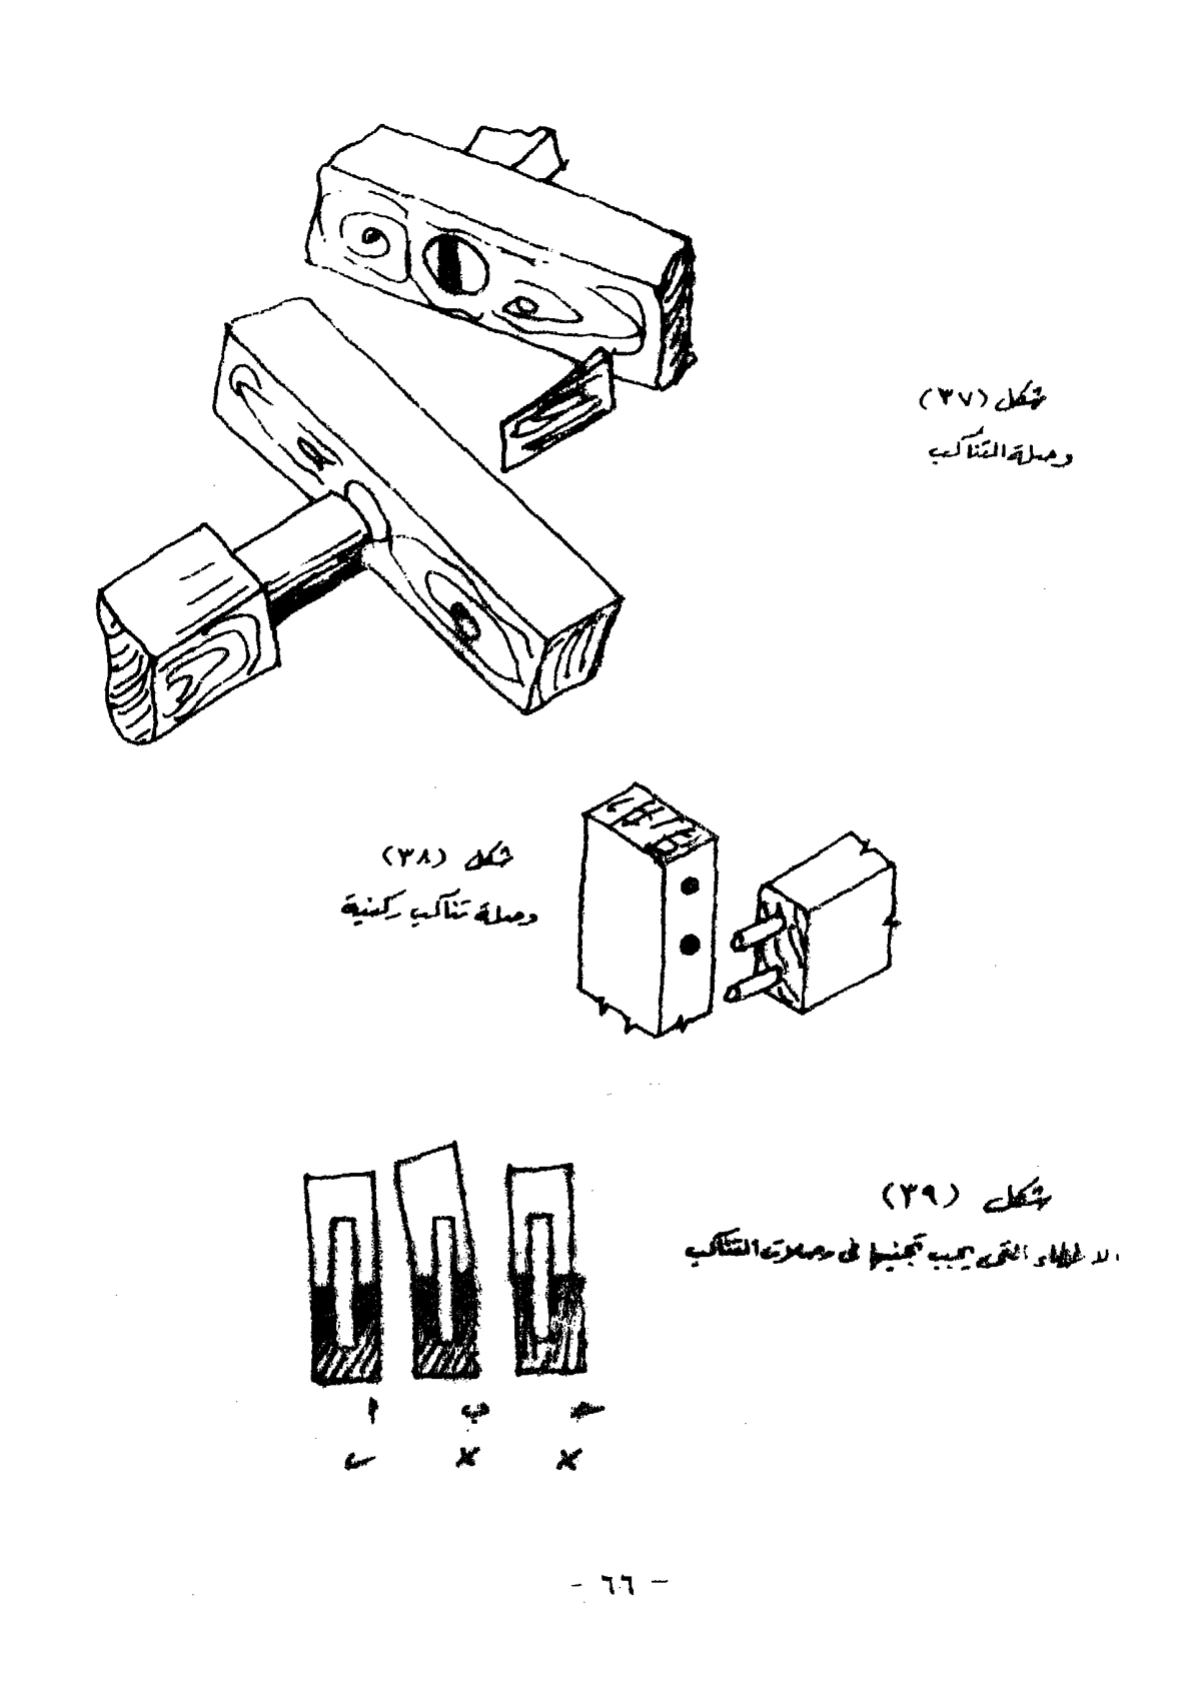 شكل (٣٧)
وصلة التناكب
شكل (٣٨)
وصلة تناكب ركنية
شكل (٣٩)
الاخطاء التى يجب تجنبها فى وصلات التناكب
ا ب جـ
✓ × ×
- ٦٦ -